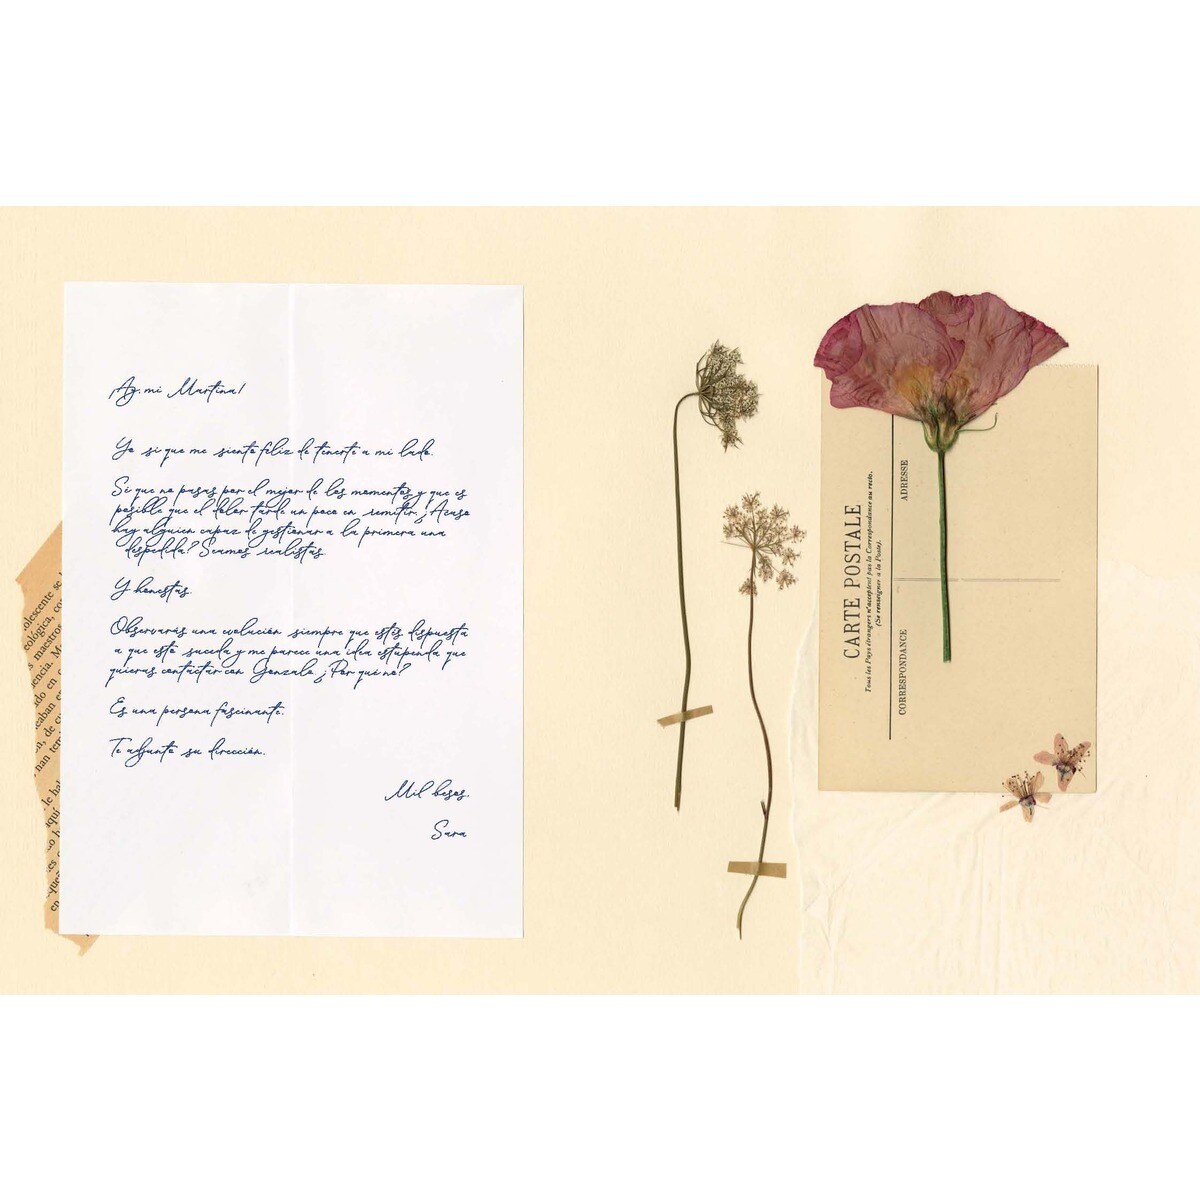 ¡Ay, mi Martina!
Yo sí que me siento feliz de tenerte a mi lado.
Sí que no pasas por el mejor de los momentos y que es
posible que el dolor tarde un poco en remitir. ¿Acaso
hay alguien capaz de gestionar a la primera una
despedida? Seamos realistas.
Y honestas.
Observarás una evolución siempre que estés dispuesta
a que esto suceda y me parece una idea estupenda que
quieras contactar con Gonzalo. ¿Por qué no?
Es una persona fascinante.
Te adjunto su dirección.
Mil besos.
Sara
CARTE POSTALE
Tous les Pays étrangers n'acceptent pas la Correspondance au recto.
(Se renseigner à la Poste).
CORRESPONDANCE
ADRESSE